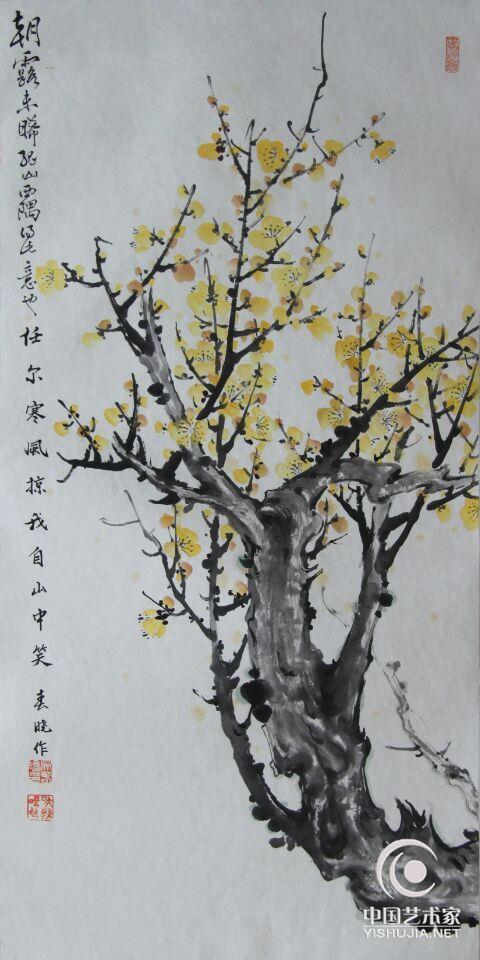 朝露未晞
山西隅
意也任尔寒风掠我自山中笑
春晓作
中国艺术家
YISHUJIA.NET